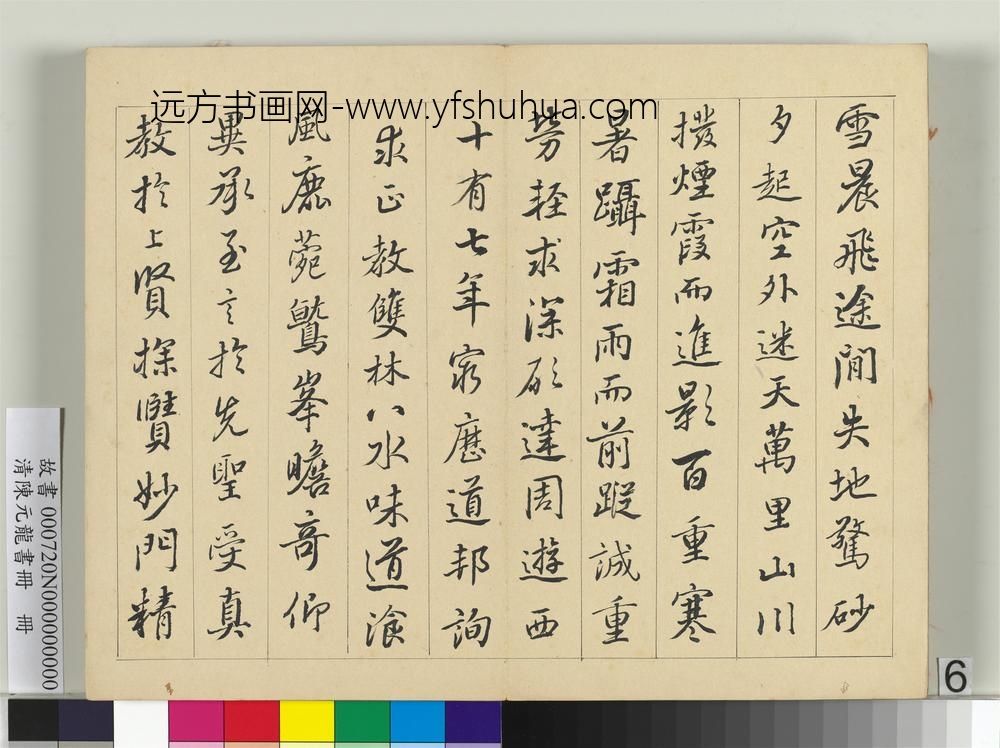 远方书画网-www.yfshuhua.com
雪晨飛途間失地驚砂
夕起空外迷天萬里山川
撥煙霞而進影百重寒
暑躡霜雨而前蹤誠重
勞輕求深欲達周遊西
十有七年窮歷道邦詢
求正教雙林八水味道飡
風鹿菀鷲峯瞻奇仰
異承至言於先聖受真
教於上賢探賾妙門精
故書 000720N000000000
清陳元龍書冊 冊
6